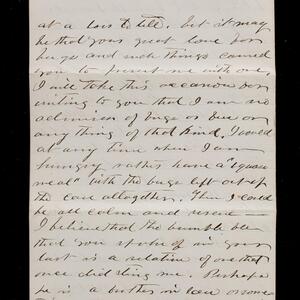 at a loss to tell. but it may
be that your great love for
bugs and such things caused
you to present me with one.
I will take this occasion for
writing to you that I am no
admirer of bugs or bees or
any thing of that kind. I would
at any time when I am
hungry rather have a "square
meal" with the bugs left out of
the case altogether. Then I could
be all calm and serene —
I believe that the bumble bee
that you spoke of in your
last is a relative of one that
once did sting me. Perhaps
he is a brother in law or some